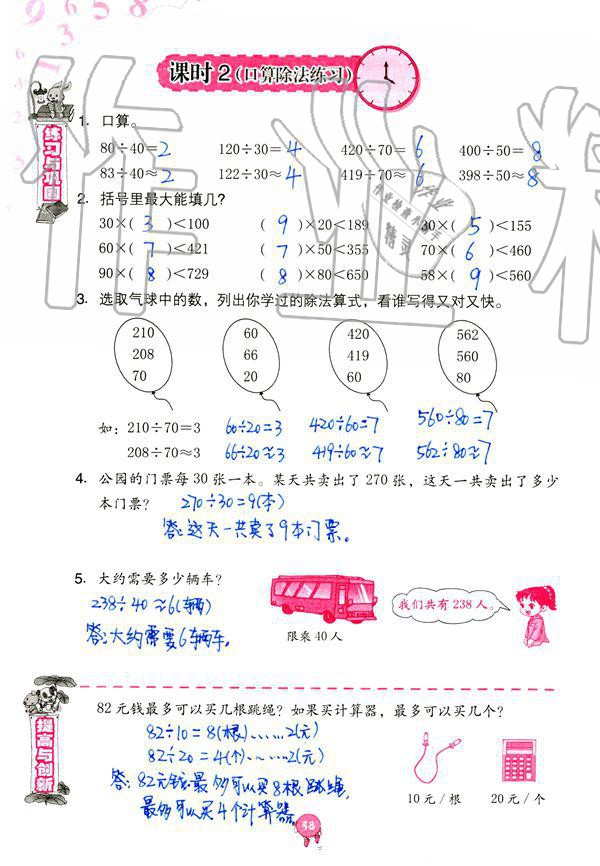 课时2（口算除法练习）
练习与巩固
1. 口算。
80÷40=2 120÷30=4 420÷70=6 400÷50=8
83÷40≈2 122÷30≈4 419÷70≈6 398÷50≈8
2. 括号里最大能填几？
30×( 3 )<100 ( 9 )×20<189 30×( 5 )<155
60×( 7 )<421 ( 7 )×50<355 70×( 6 )<460
90×( 8 )<729 ( 8 )×80<650 58×( 9 )<560
3. 选取气球中的数，列出你学过的除法算式，看谁写得又对又快。
210 60 420 562
208 66 419 560
70 20 60 80
如：210÷70=3 60÷20=3 420÷60=7 560÷80=7
208÷70≈3 66÷20≈3 419÷60≈7 562÷80≈7
4. 公园的门票每 30 张一本。某天共卖出了 270 张，这天一共卖出了多少
本门票？ 270÷30=9(本)
答:这天一共卖了9本门票。
5. 大约需要多少辆车？
238÷40≈6(辆)
答:大约需要6辆车。
限乘 40 人
我们共有 238 人。
提高与创新
82 元钱最多可以买几根跳绳？如果买计算器，最多可以买几个？
82÷10=8(根)……2(元)
82÷20=4(个)……2(元)
答:82元钱最多可以买8根跳绳,
最多可以买4个计算器。
10 元/根 20 元/个
58
作业精灵